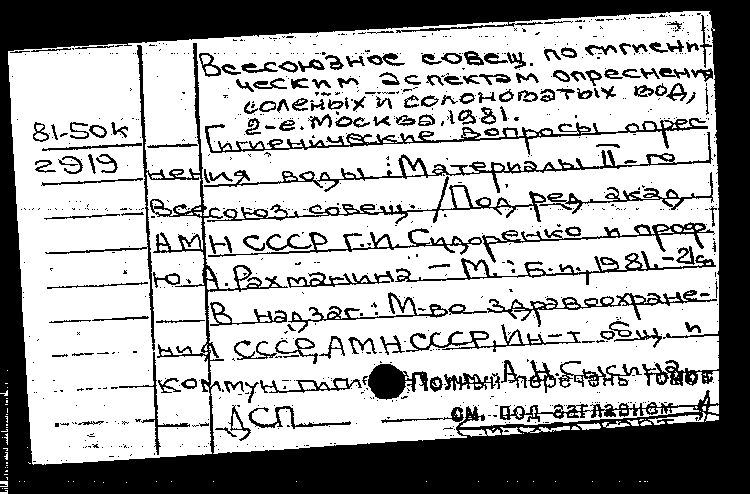 Всесоюзное совещ. по гигиени-
ческим аспектам опреснения
соленых и солоноватых вод,
2-е. Москва, 1981.
81-50к
[Гигиенические вопросы опрес
2919
нения воды : Материалы II-го
Всесоюз. совещ. / Под ред. акад.
АМН СССР Г.И. Сидоренко и проф.
Ю. А. Рахманина — М. : Б.и., 1981. -
В надзаг. : М-во здравоохране-
ния СССР, АМН СССР, Ин-т общ. и
коммун. гиги А.Н. Сысина
Полный перечень томов
ДСП
см. под заглавием